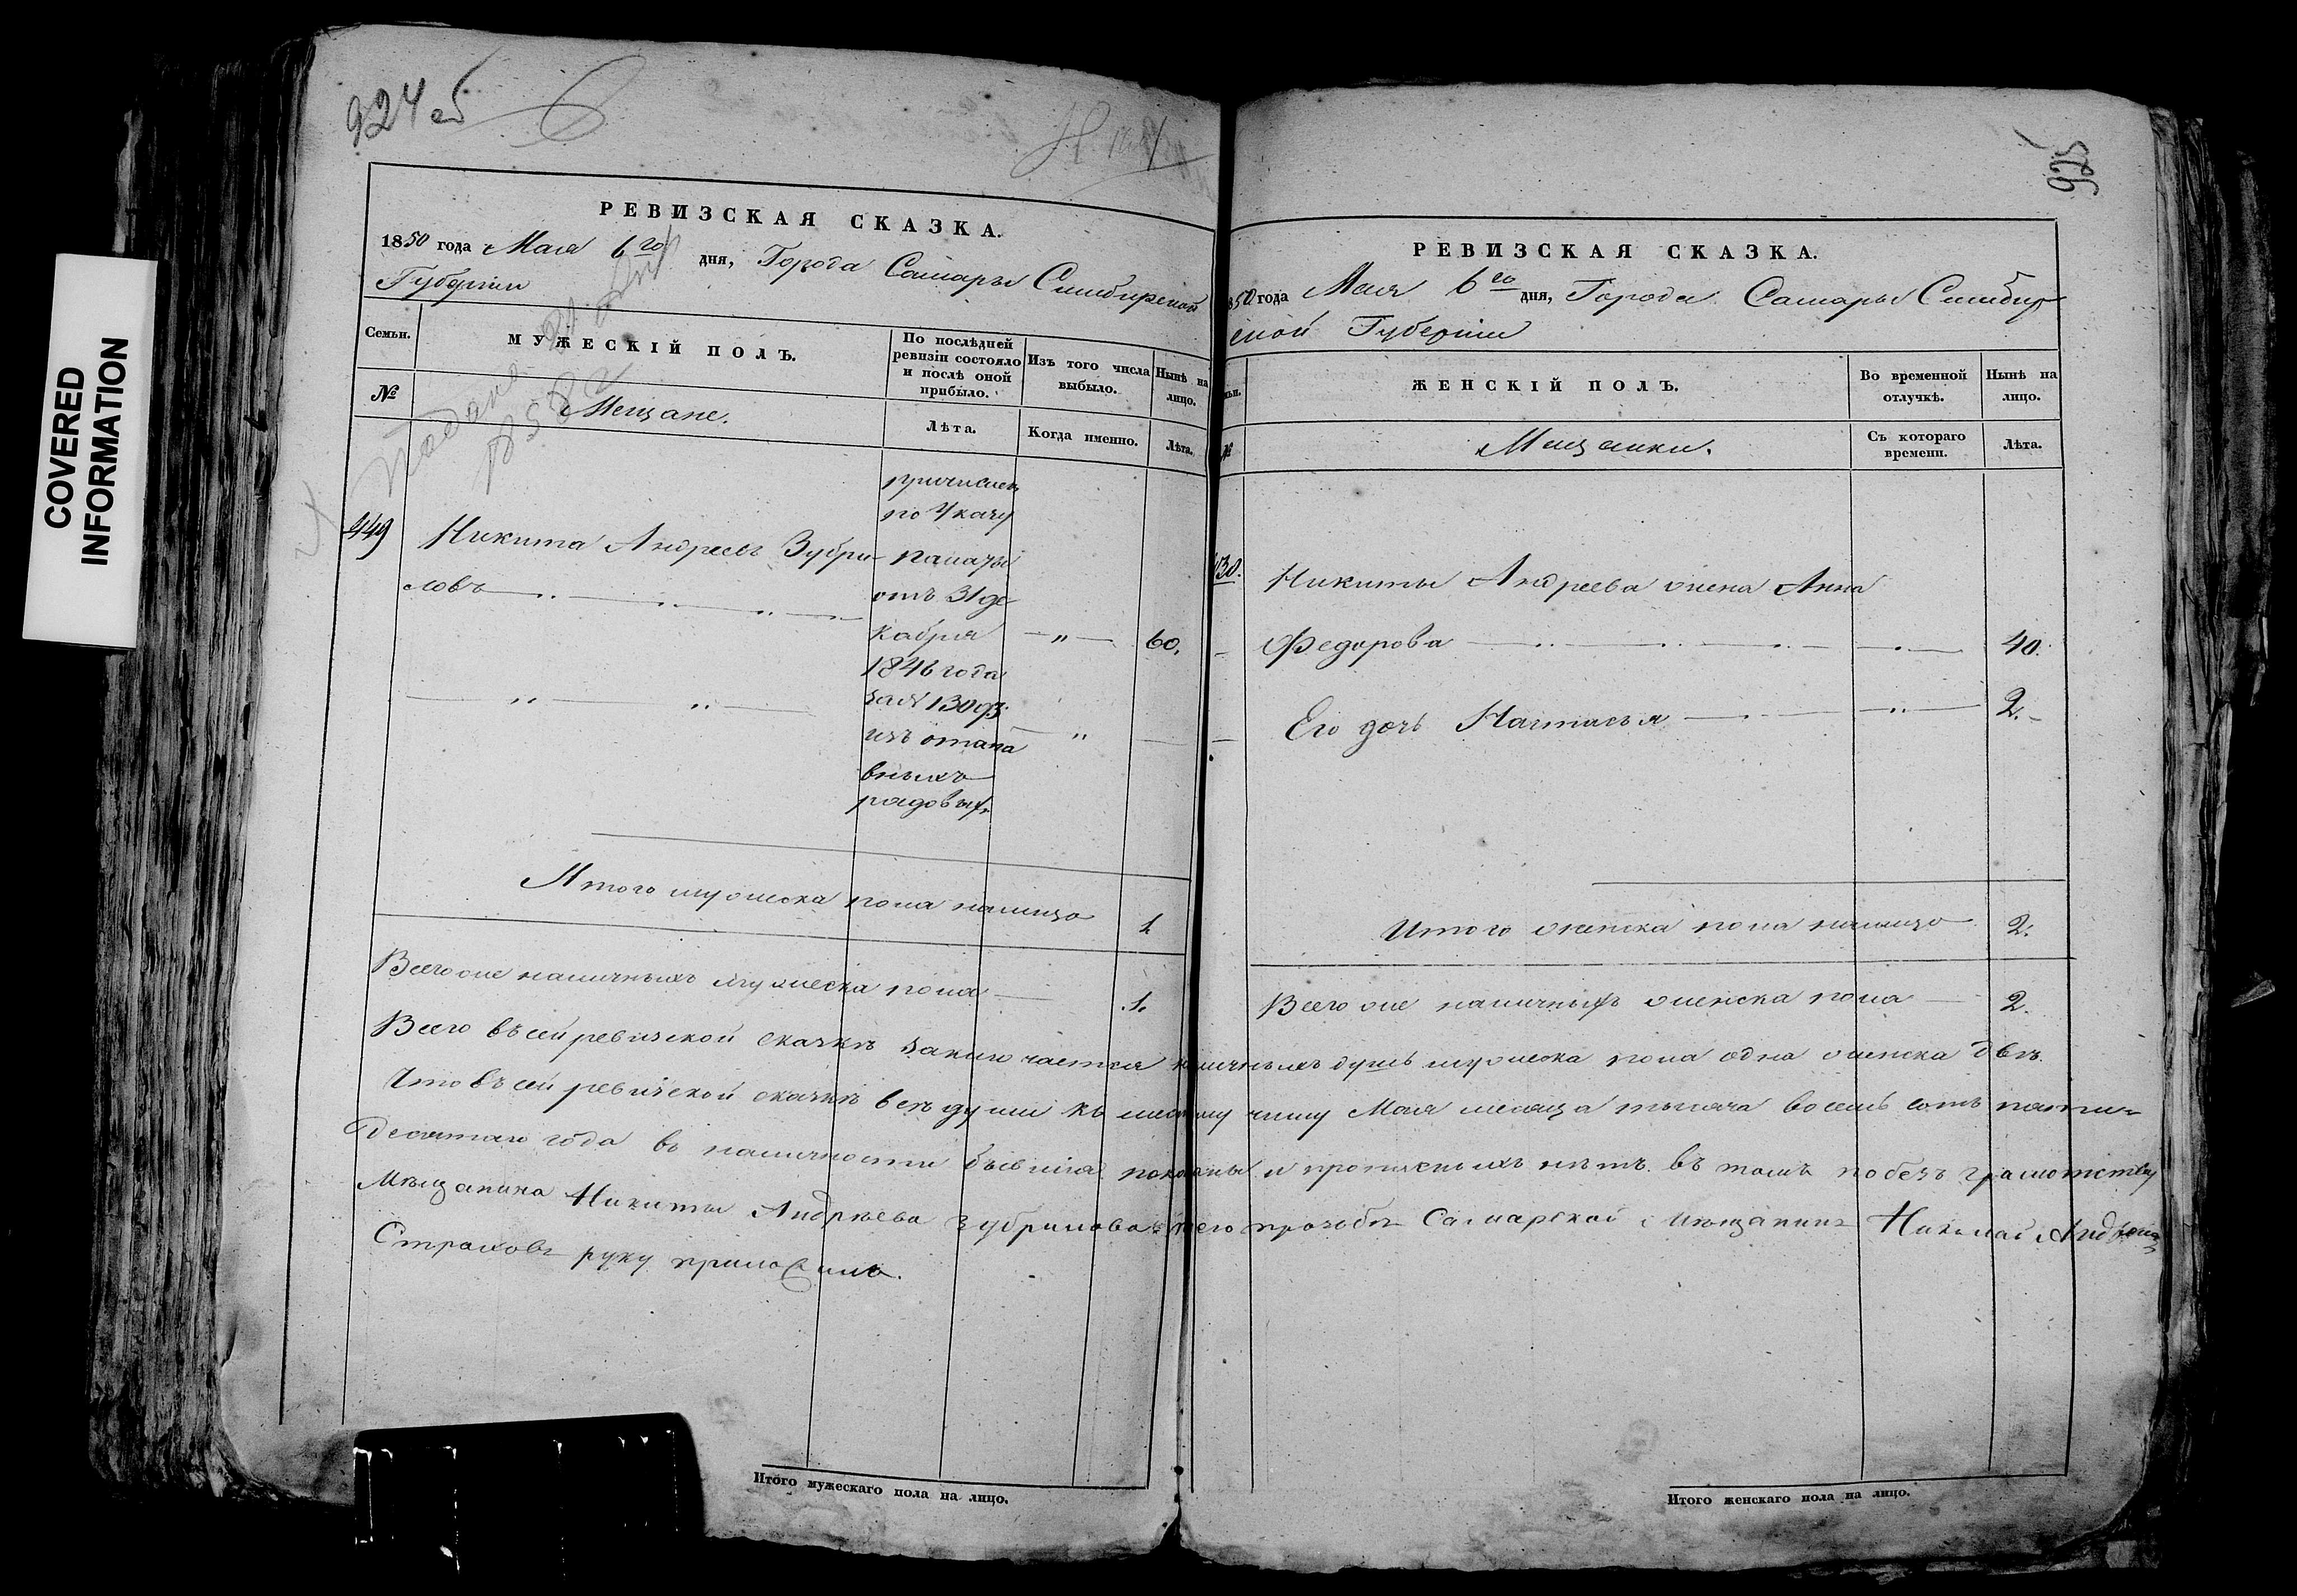 COVERED
INFORMATION
924 об
РЕВИЗСКАЯ СКАЗКА.
1850 года Мая 6го дня, Города Самары Симбирской
Губернии
Семьи.
МУЖЕСКІЙ ПОЛЪ.
По послѣдней
ревизіи состояло
и послѣ оной
прибыло.
Изъ того числа
выбыло.
Нынѣ на
лицо.
№
Мещане.
Лѣта.
Когда именно.
Лѣта.
причислен
по Указу
палаты
отъ 31 де
кабря
1846 года
за № 13093
изъ отста
вныхъ
рядовыхъ
449
Никита Андреевъ Зубри-
ловъ
60.
Итого мужеска пола налицо 1
Всего же наличныхъ мужеска пола 1.
Итого мужескаго пола на лицо.
925
РЕВИЗСКАЯ СКАЗКА.
1850 года Мая 6го дня, Города Самары Симбир
ской Губерніи
ЖЕНСКІЙ ПОЛЪ.
Во временной
отлучкѣ.
Нынѣ на
лицо.
№
Мещанки.
Съ котораго
времени.
Лѣта.
Никиты Андреева жена Анна
Федорова 40.
Его дочь Настасья 2.
Итого женска пола налицо 2.
Всего же наличныхъ женска пола 2.
Всего въ сей ревизской сказкѣ заключается наличныхъ душъ мужеска пола одна женска двѣ.
Что въ сей ревизской сказкѣ всѣ души къ шестому числу Мая месяца тысяча восемь сотъ пяти-
десятаго года въ наличности бывшія показаны и прописныхъ нѣтъ. въ томъ по безъ грамотству
Мѣщанина Никиты Андрѣева Зубрилова его прозьбѣ Самарской Мѣщанинъ Николай
Страховъ руку приложилъ.
Итого женскаго пола на лицо.